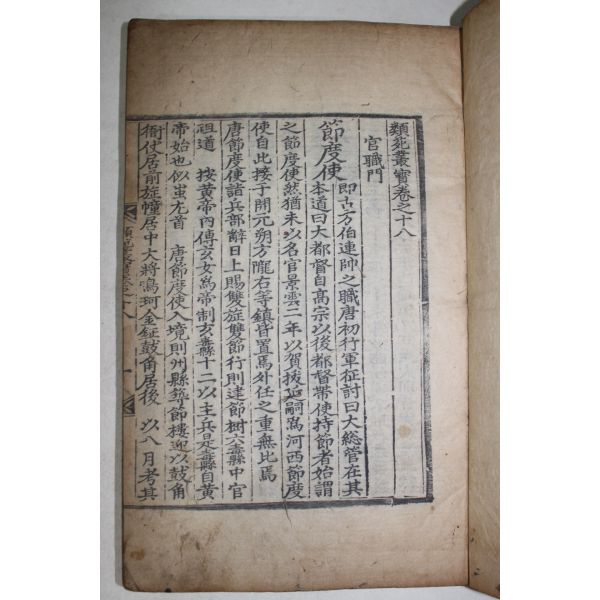 類苑叢寶卷之十八
官職門
節度使 即古方伯連帥之職唐初行軍征討曰大總管在其
本道曰大都督自高宗以後都督帶使持節者始謂
之節度使然猶未以名官景雲二年以賀拔延嗣爲河西節度
使自此接于開元朔方隴右等鎮皆置焉外任之重無比焉
唐節度使諸兵部辭日上賜雙旌雙節行則建節樹六纛中官
祖道 按黃帝內傳玄女爲帝制玄纛十二以主兵是纛自黃
帝始也似蚩尤首 唐節度使入境則州縣築節樓迎以鼓角
衙仗居前旌幢居中大將鳴珂金鉦鼓角居後 以八月考其